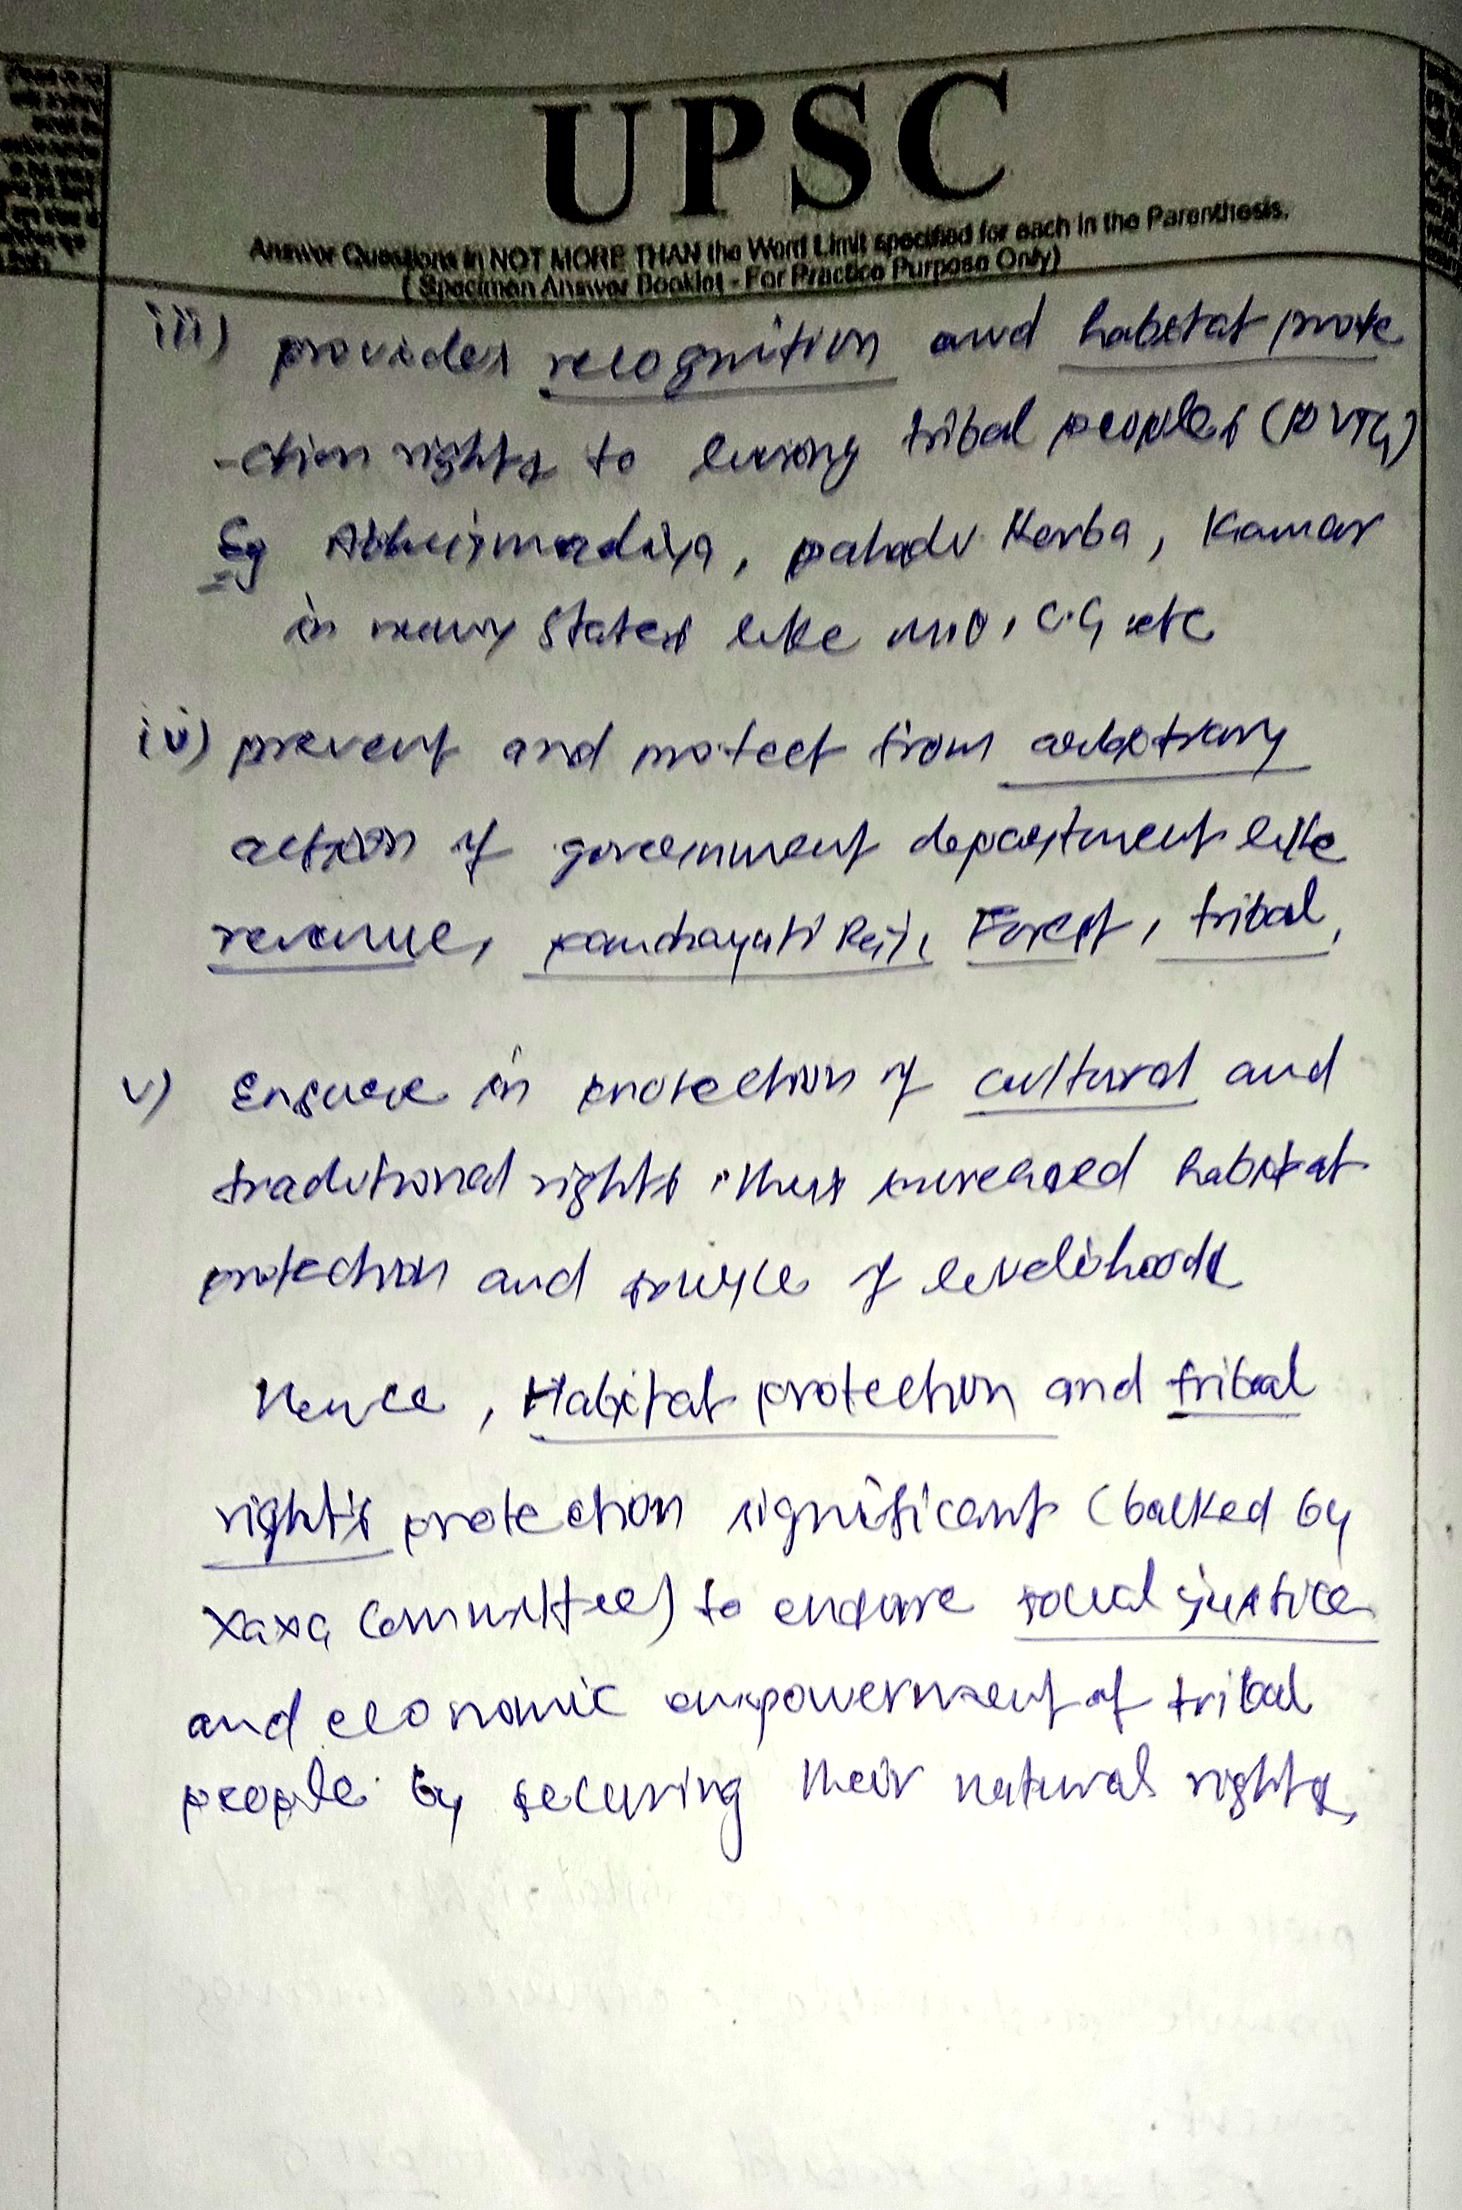 UPSC
Answer Questions in NOT MORE THAN the Word Limit specified for each in the Parenthesis.
( Specimen Answer Booklet - For Practice Purpose Only)
iii) provides recognition and habitat prote
-ction rights to living tribal peoples (PVTG)
Eg Abhujmadiya, pahadi Korba, Kamar
in many states like M.P, C.G etc
iv) prevent and protect from arbitrary
action of government department like
revenue, panchayati Raj, Forest, tribal,
v) Ensure in protection of cultural and
traditional rights, thus increased habitat
protection and source of livelihoods
Hence, Habitat protection and tribal
right's protection significant (backed by
Xaxa Committee) to endure social justice
and economic empowerment of tribal
people by securing their natural rights.